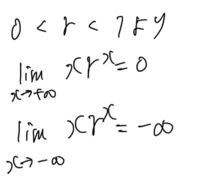 0 < r < 1より
lim x→+∞ xr^x = 0
lim x→-∞ xr^x = -∞